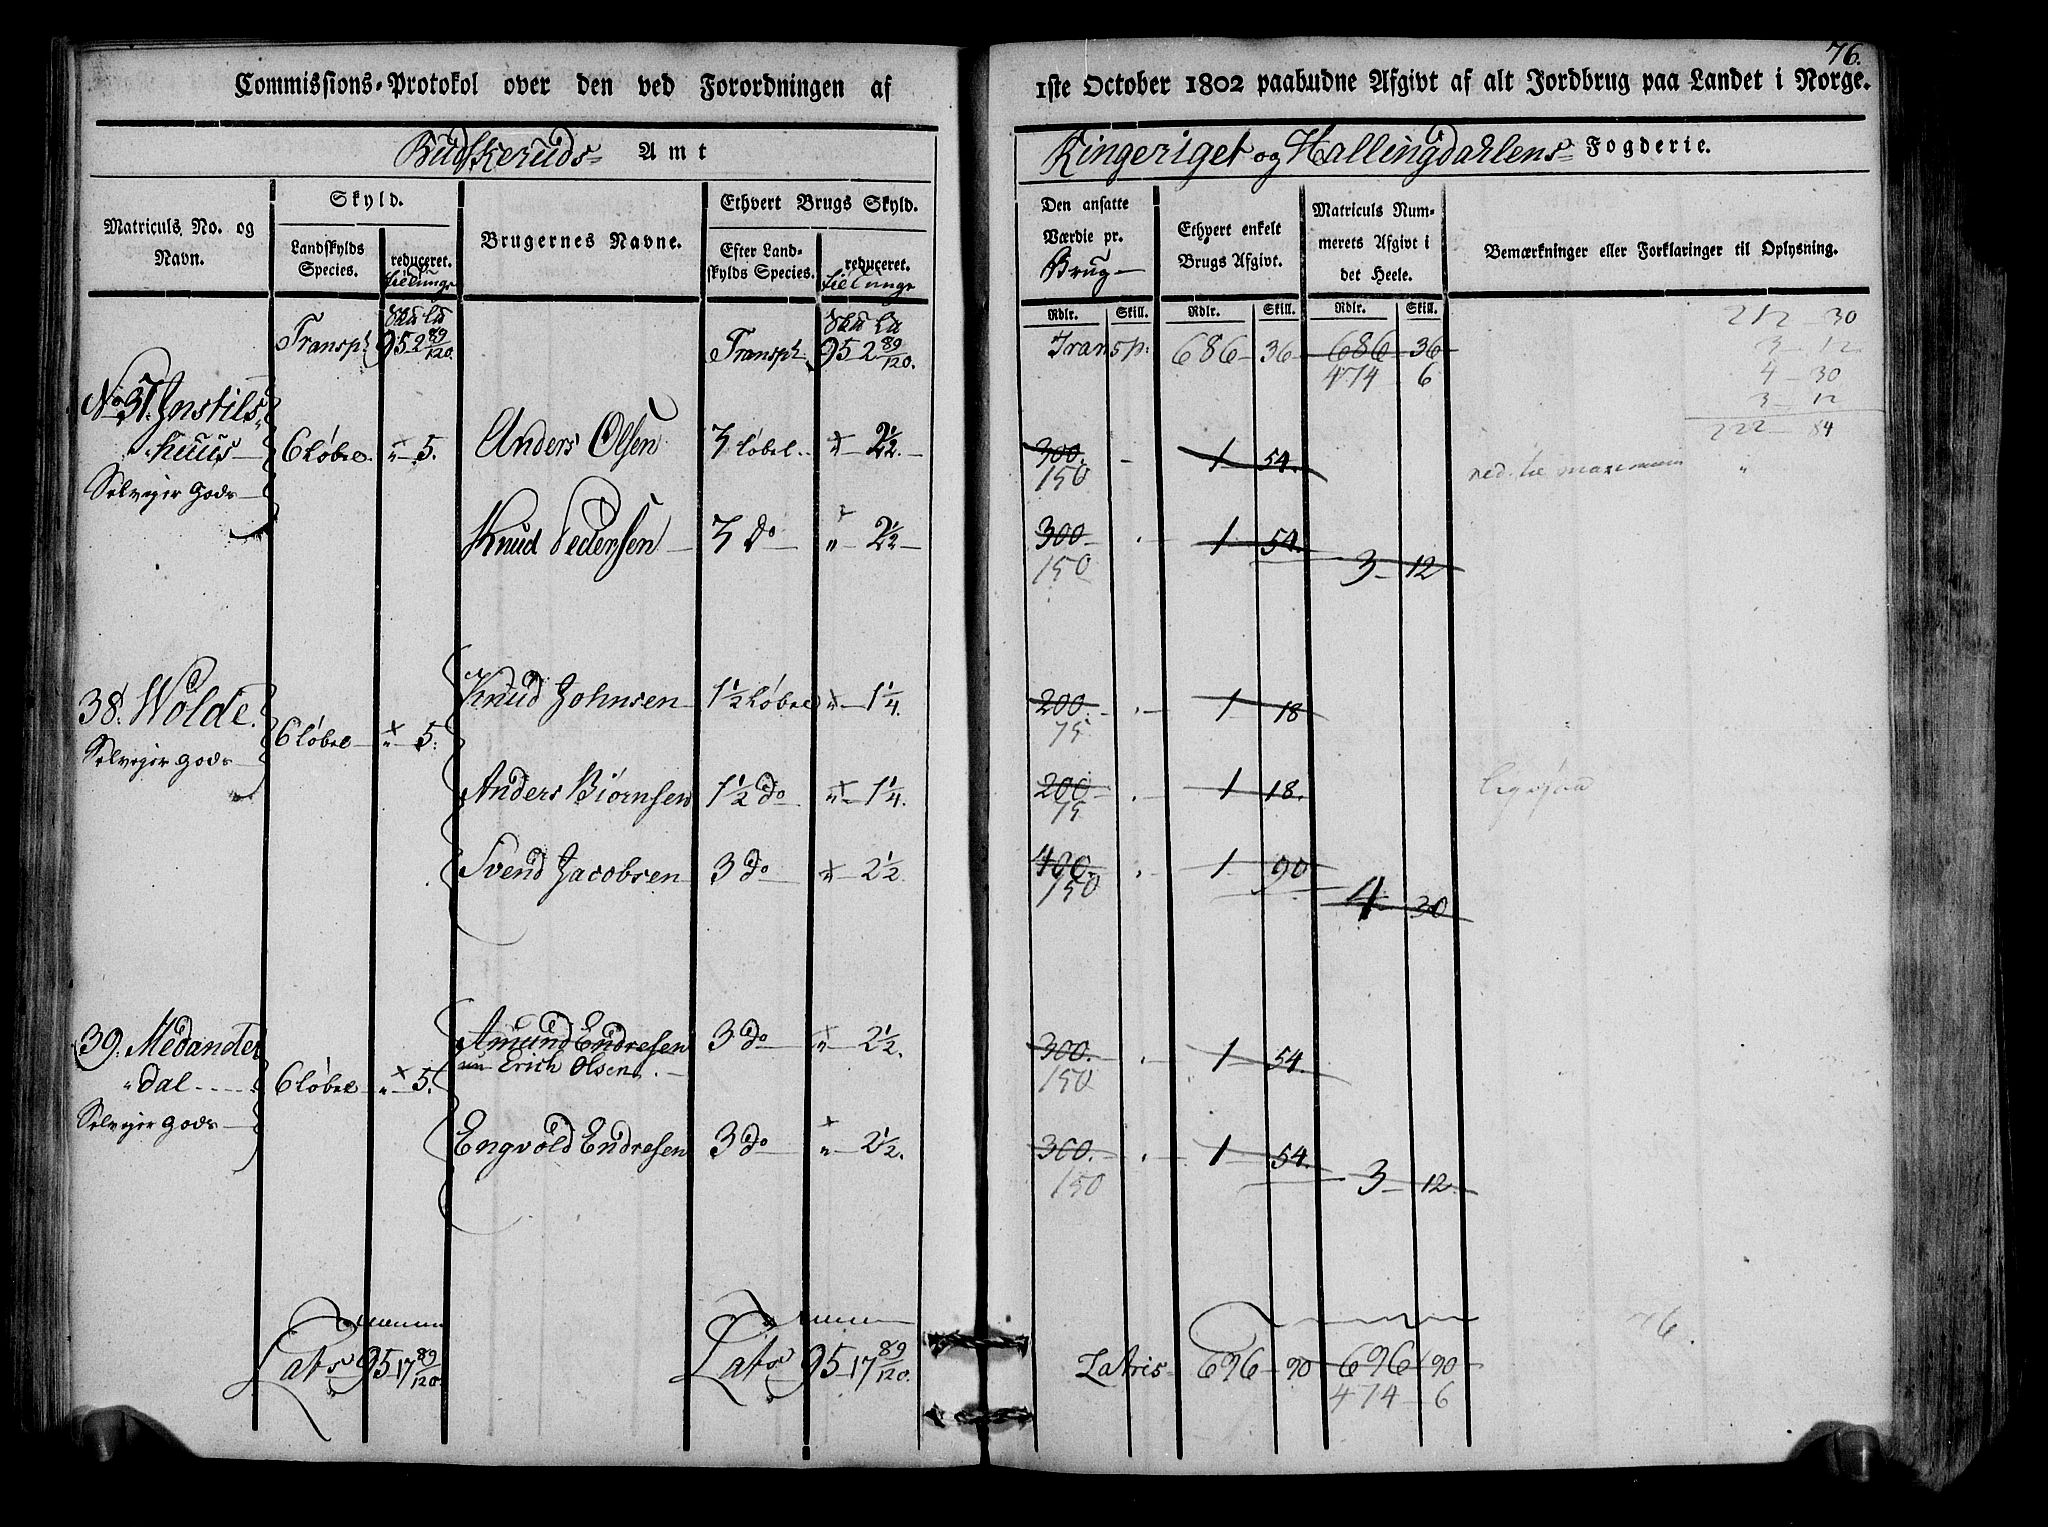 76.
Commissions-Protokol over den ved Forordningen af 1ste October 1802 paabudne Afgivt af alt Jordbrug paa Landet i Norge.
Budskeruds Amt Ringeriget og Hallingdahlens Fogderie.
Matriculs No. og Navn. Skyld. Brugernes Navne. Ethvert Brugs Skyld. Den ansatte Værdie pr. Brug Ethvert enkelt Brugs Afgivt. Matriculs Nummerets Afgivt i det Heele. Bemærkninger eller Forklaringer til Oplysning.
Landskylds Species. reduceret. Efter Landskylds Species. reduceret.
Rdlr. Skill. Rdlr. Skill. Rdlr. Skill.
212 - 30
Transpt 95 2 89/120. Transpt 95 2 89/120. Transp: 686 - 36 686 36
3 - 12
474 6
4 - 30
3 - 12
222 - 84
No 37. Instils-
huus 6 Løbel. " 5. Anders Olsen 3 Løbel " 2 1/2. 300. - 1 54.
150
Selveier Gods
Knud Pedersen 3 do " 2 1/2 300 1 54. 3 - 12
150
38. Wolde. 6 Løbel " 5. Knud Johnsen 1 1/2 Løbel " 1 1/4. 200. 1 18
75
Selveier Gods
Anders Biørnsen 1 1/2 do " 1 1/4. 200 1 18.
75
Svend Jacobsen 3 do " 2 1/2. 400. 1 90 4 30
150
39. Medander
dal 6 Løbel " 5. Amund Endresen 3 do " 2 1/2. 300. 1 54.
nu Erich Olsen 150
Selveier Gods
Engvold Endresen 3 do " 2 1/2. 300. 1 54. 3 12.
150
76.
Lats 95 17 89/120. Lats 95 17 89/120. Latris 696 - 90 696 90
474 - 6